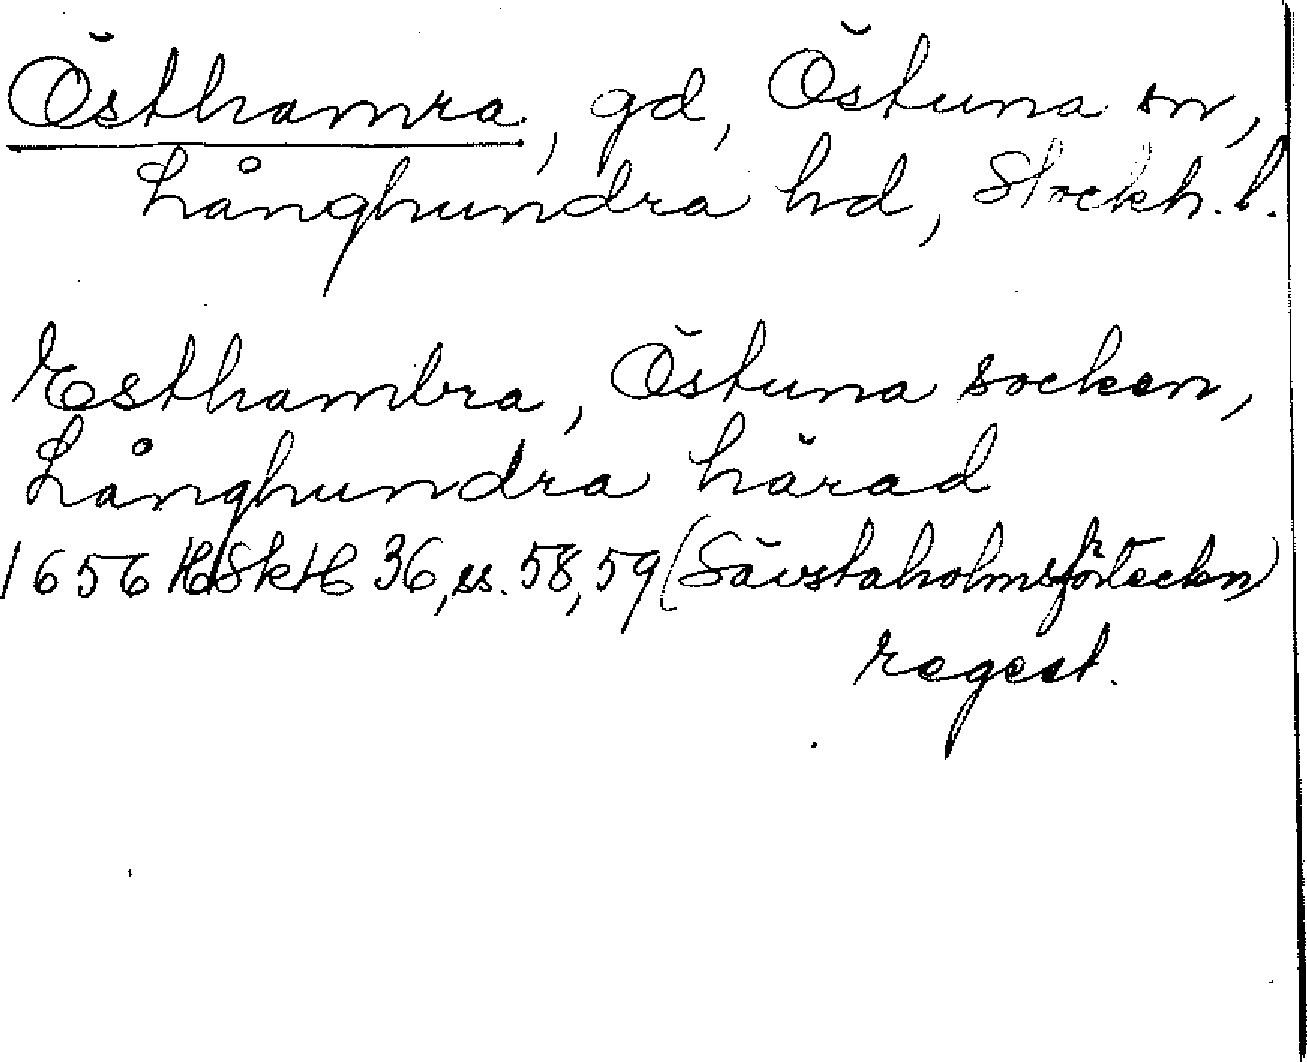 Östhamra, gd, Östuna sn,
Långhundra hd, Stockh. l.
Esthambra, Östuna socken,
Långhundra härad
1656 HSkH 36, ss. 58, 59 (Sävstaholmsförteckn)
regest.